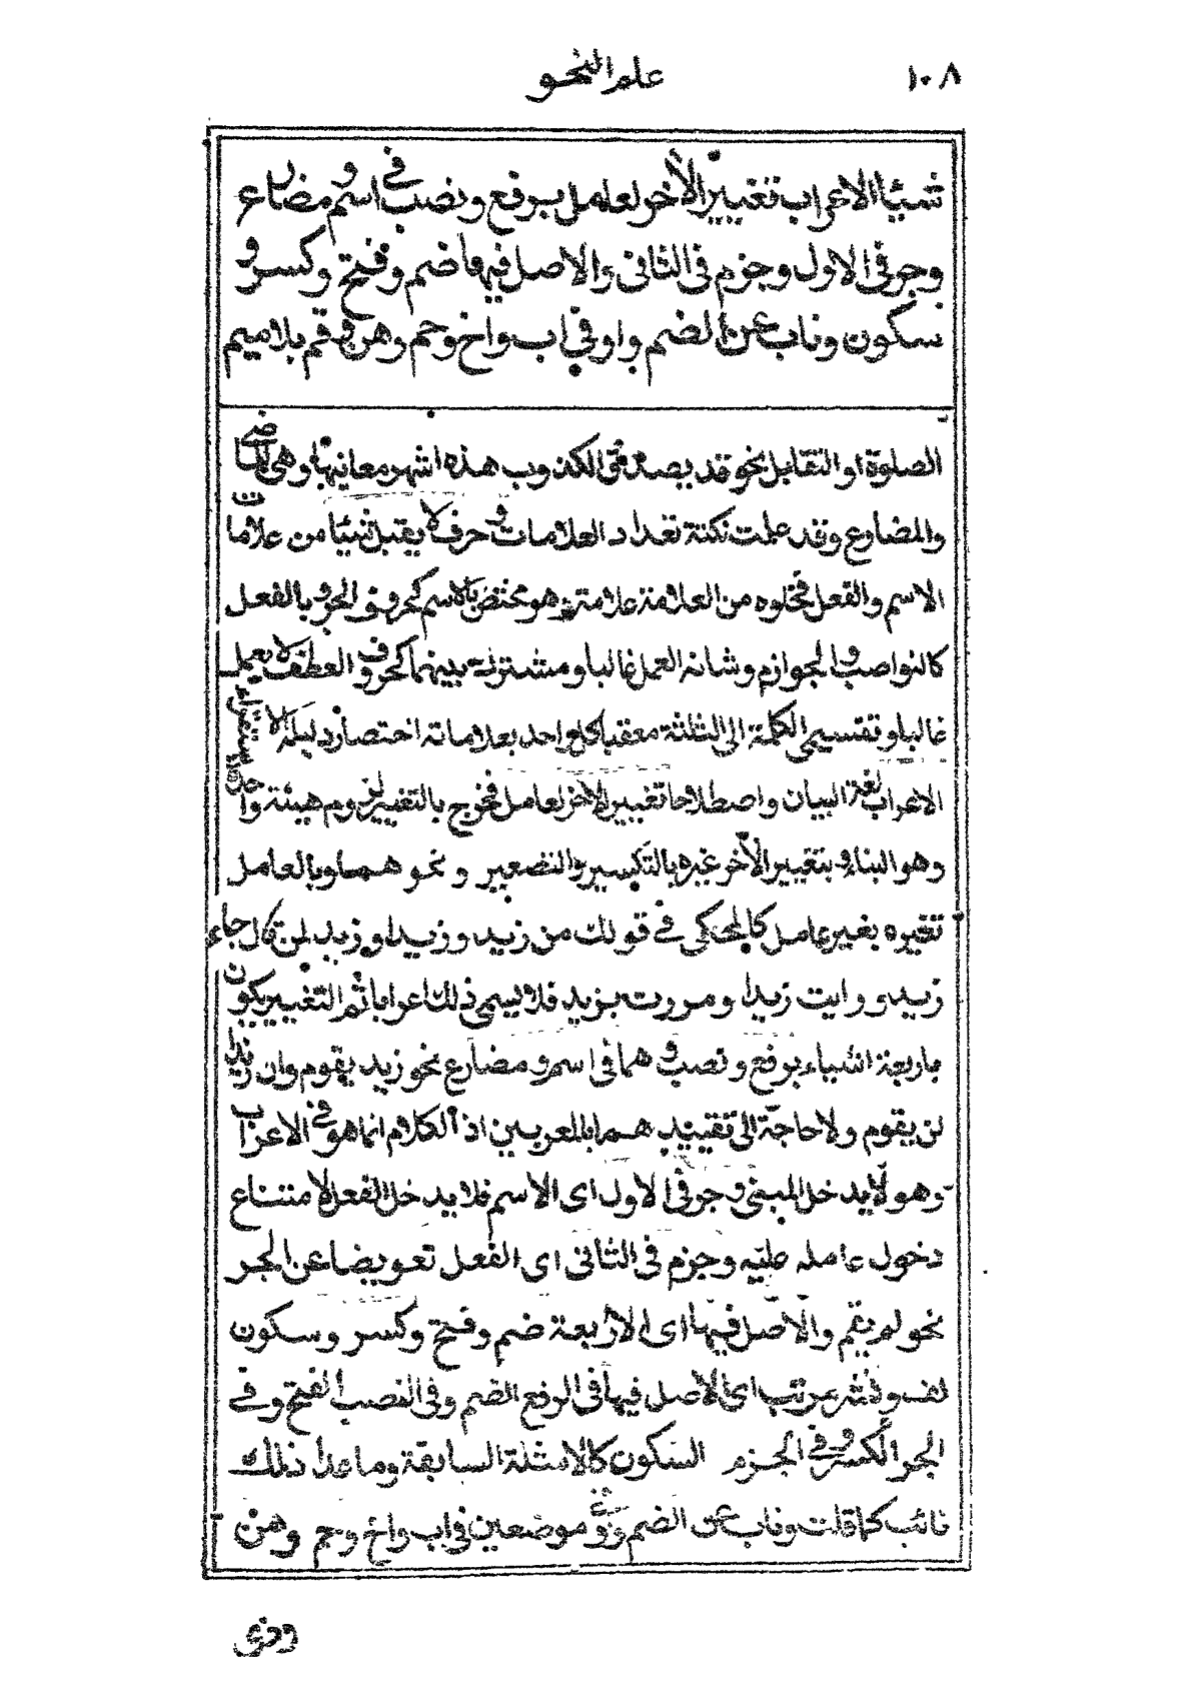 ١٠٨ علم النحو
شيئا الاعراب تغيير الآخر لعامل برفع ونصب في اسم ومضارع
وجر في الاول وجزم في الثاني والاصل فيها ضم وفتح وكسر و
سكون وناب عن الضم واو في اب واخ وحم وهن وفم بلا ميم
الصلوة او التقابل نحو قد يصدق الكذوب هذه اشهر معانيها وهي للماضي
والمضارع وقد علمت نكتة تعداد العلامات وحرف لا يقبل شيئا من علامات
الاسم والفعل فخلوه من العلامة علامته وهو مختص بالاسم كحروف الجر وبالفعل
كالنواصب والجوازم وشانه العمل غالبا ومشترك بينهما كحروف العطف لا يعمل
غالبا وتقسيمي الكلمة الى الثلثة معقبا كل واحد بعلاماته اختصارا دليله الاستقراء
الاعراب لغة البيان واصطلاحا تغيير الآخر لعامل فخرج بالتغيير لزوم هيئة واحدة
وهو البناء وبتغيير الآخر غيره بالتكسير والتصغير ونحوهما وبالعامل
تغيره بغير عامل كالمحكي في قولك من زيد وزيدا وزيد لمن قال جاء
زيد ورايت زيدا ومررت بزيد فلا يسمى ذلك اعرابا ثم التغيير يكون
باربعة اشياء برفع ونصب وهما في اسم ومضارع نحو زيد يقوم وان زيدا
لن يقوم ولا حاجة الى تقييدهما بالمعربين اذ الكلام انما هو في الاعراب
وهو لا يدخل المبني وجر في الاول اى الاسم فلا يدخل الفعل لامتناع
دخول عامله عليه وجزم في الثاني اى الفعل تعويضا عن الجر
نحو لم يقم والاصل فيها اى الاربعة ضم وفتح وكسر وسكون
لف ونشر مرتب اى الاصل فيها في الرفع الضم وفي النصب الفتح وفي
الجر الكسر وفي الجزم السكون كالامثلة السابقة وما عدا ذلك
نائب كما قلت وناب عن الضم واو في موضعين في اب واخ وحم وهن